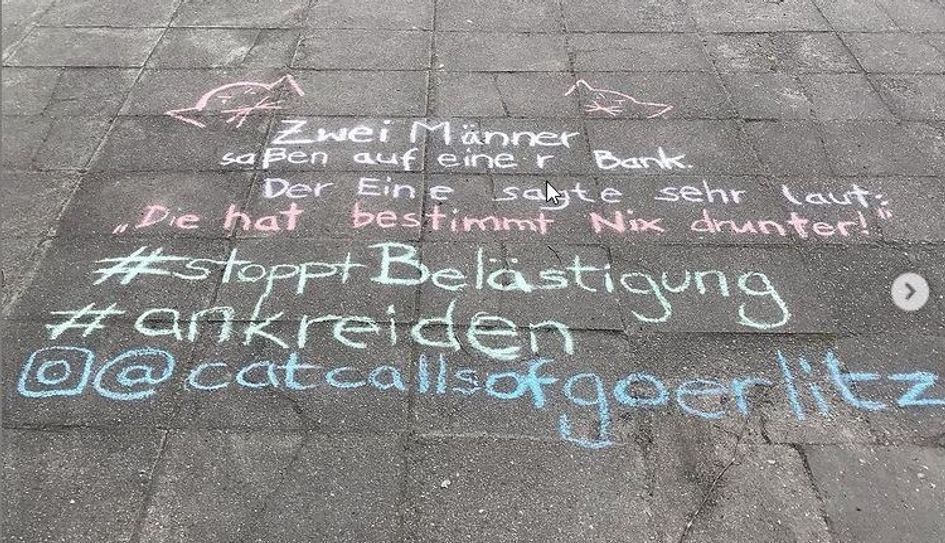 Zwei Männer
saßen auf einer Bank.
Der Eine sagte sehr laut:
„Die hat bestimmt Nix drunter!"
#stopptBelästigung
#ankreiden
@catcallsofgoerlitz